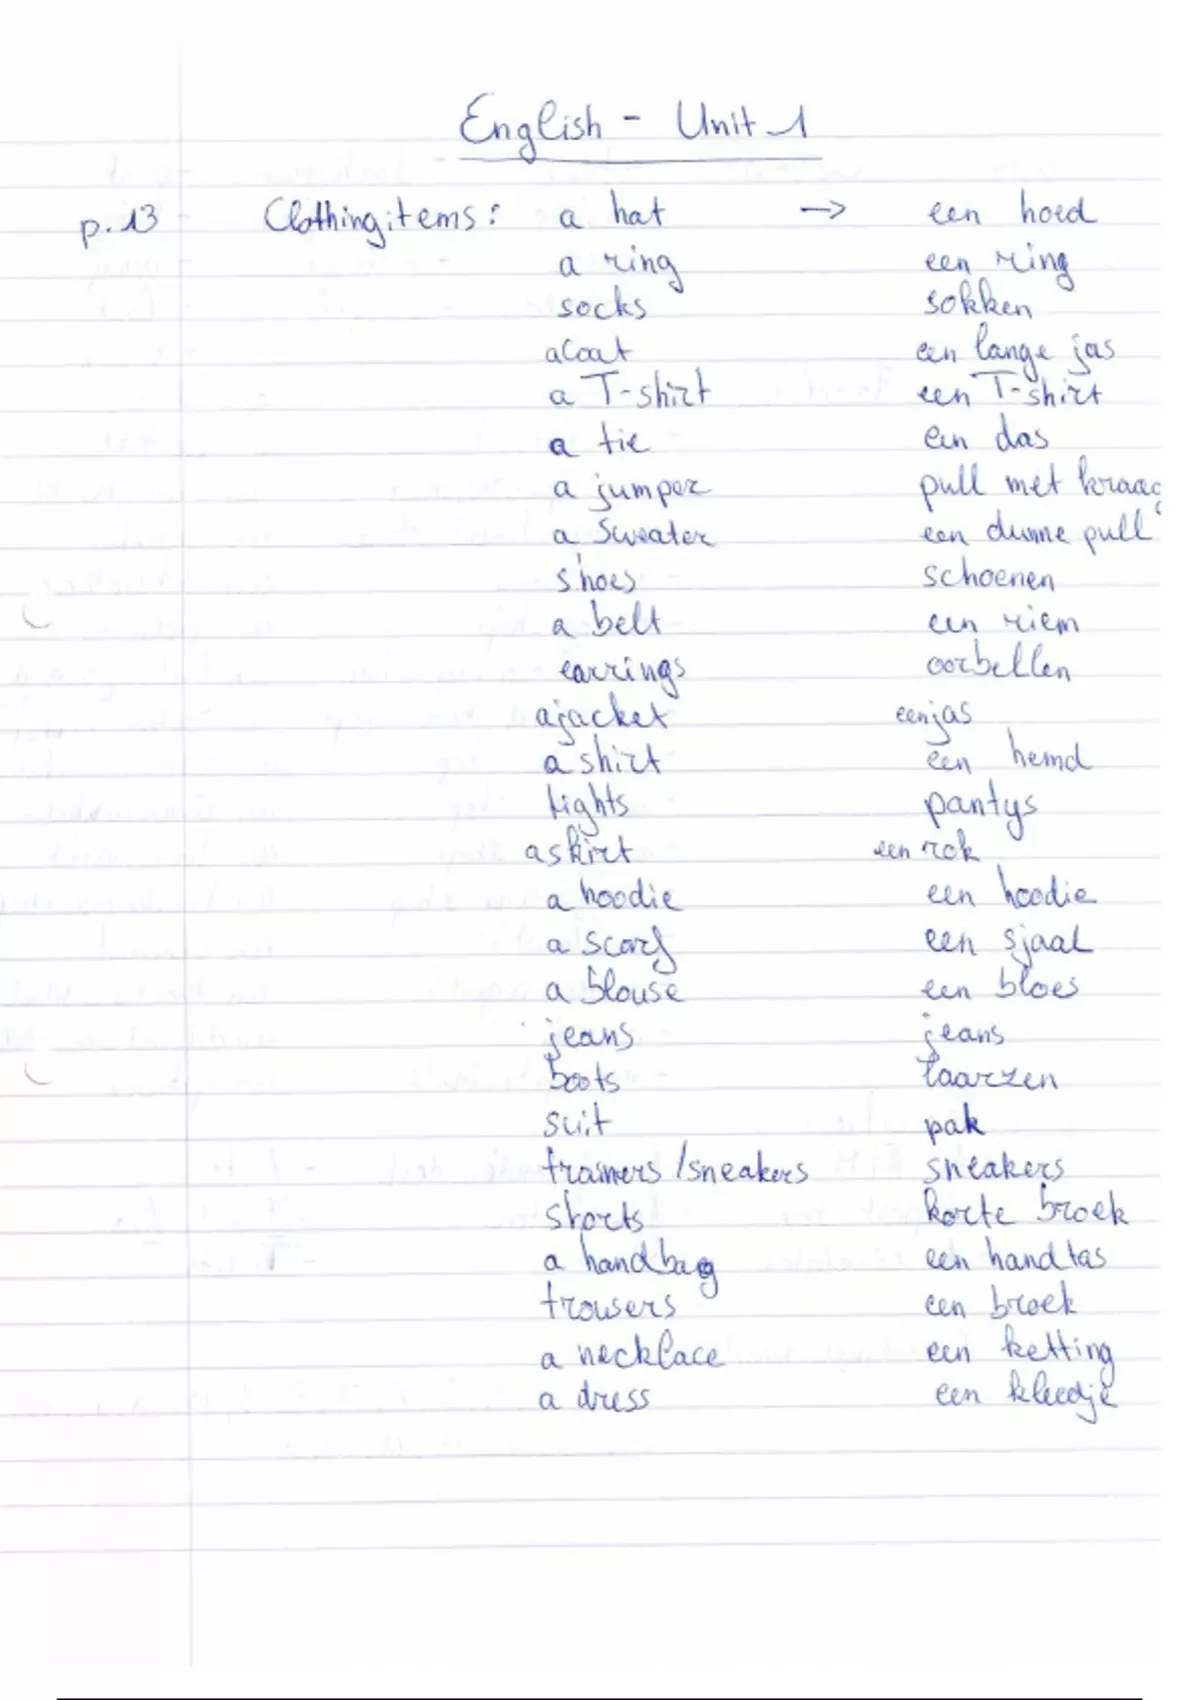 English - Unit 1
p. 13 Clothing items: a hat → een hoed
a ring een ring
socks sokken
a Coat een lange jas
a T-shirt een T-shirt
a tie een das
a jumper pull met kraag
a sweater een dunne pull
shoes schoenen
a belt een riem
earrings oorbellen
a jacket een jas
a shirt een hemd
tights pantys
a skirt een rok
a hoodie een hoodie
a scarf een sjaal
a blouse een bloes
jeans jeans
boots laarzen
suit pak
trainers / sneakers sneakers
shorts korte broek
a handbag een handtas
trousers een broek
a necklace een ketting
a dress een kleedje